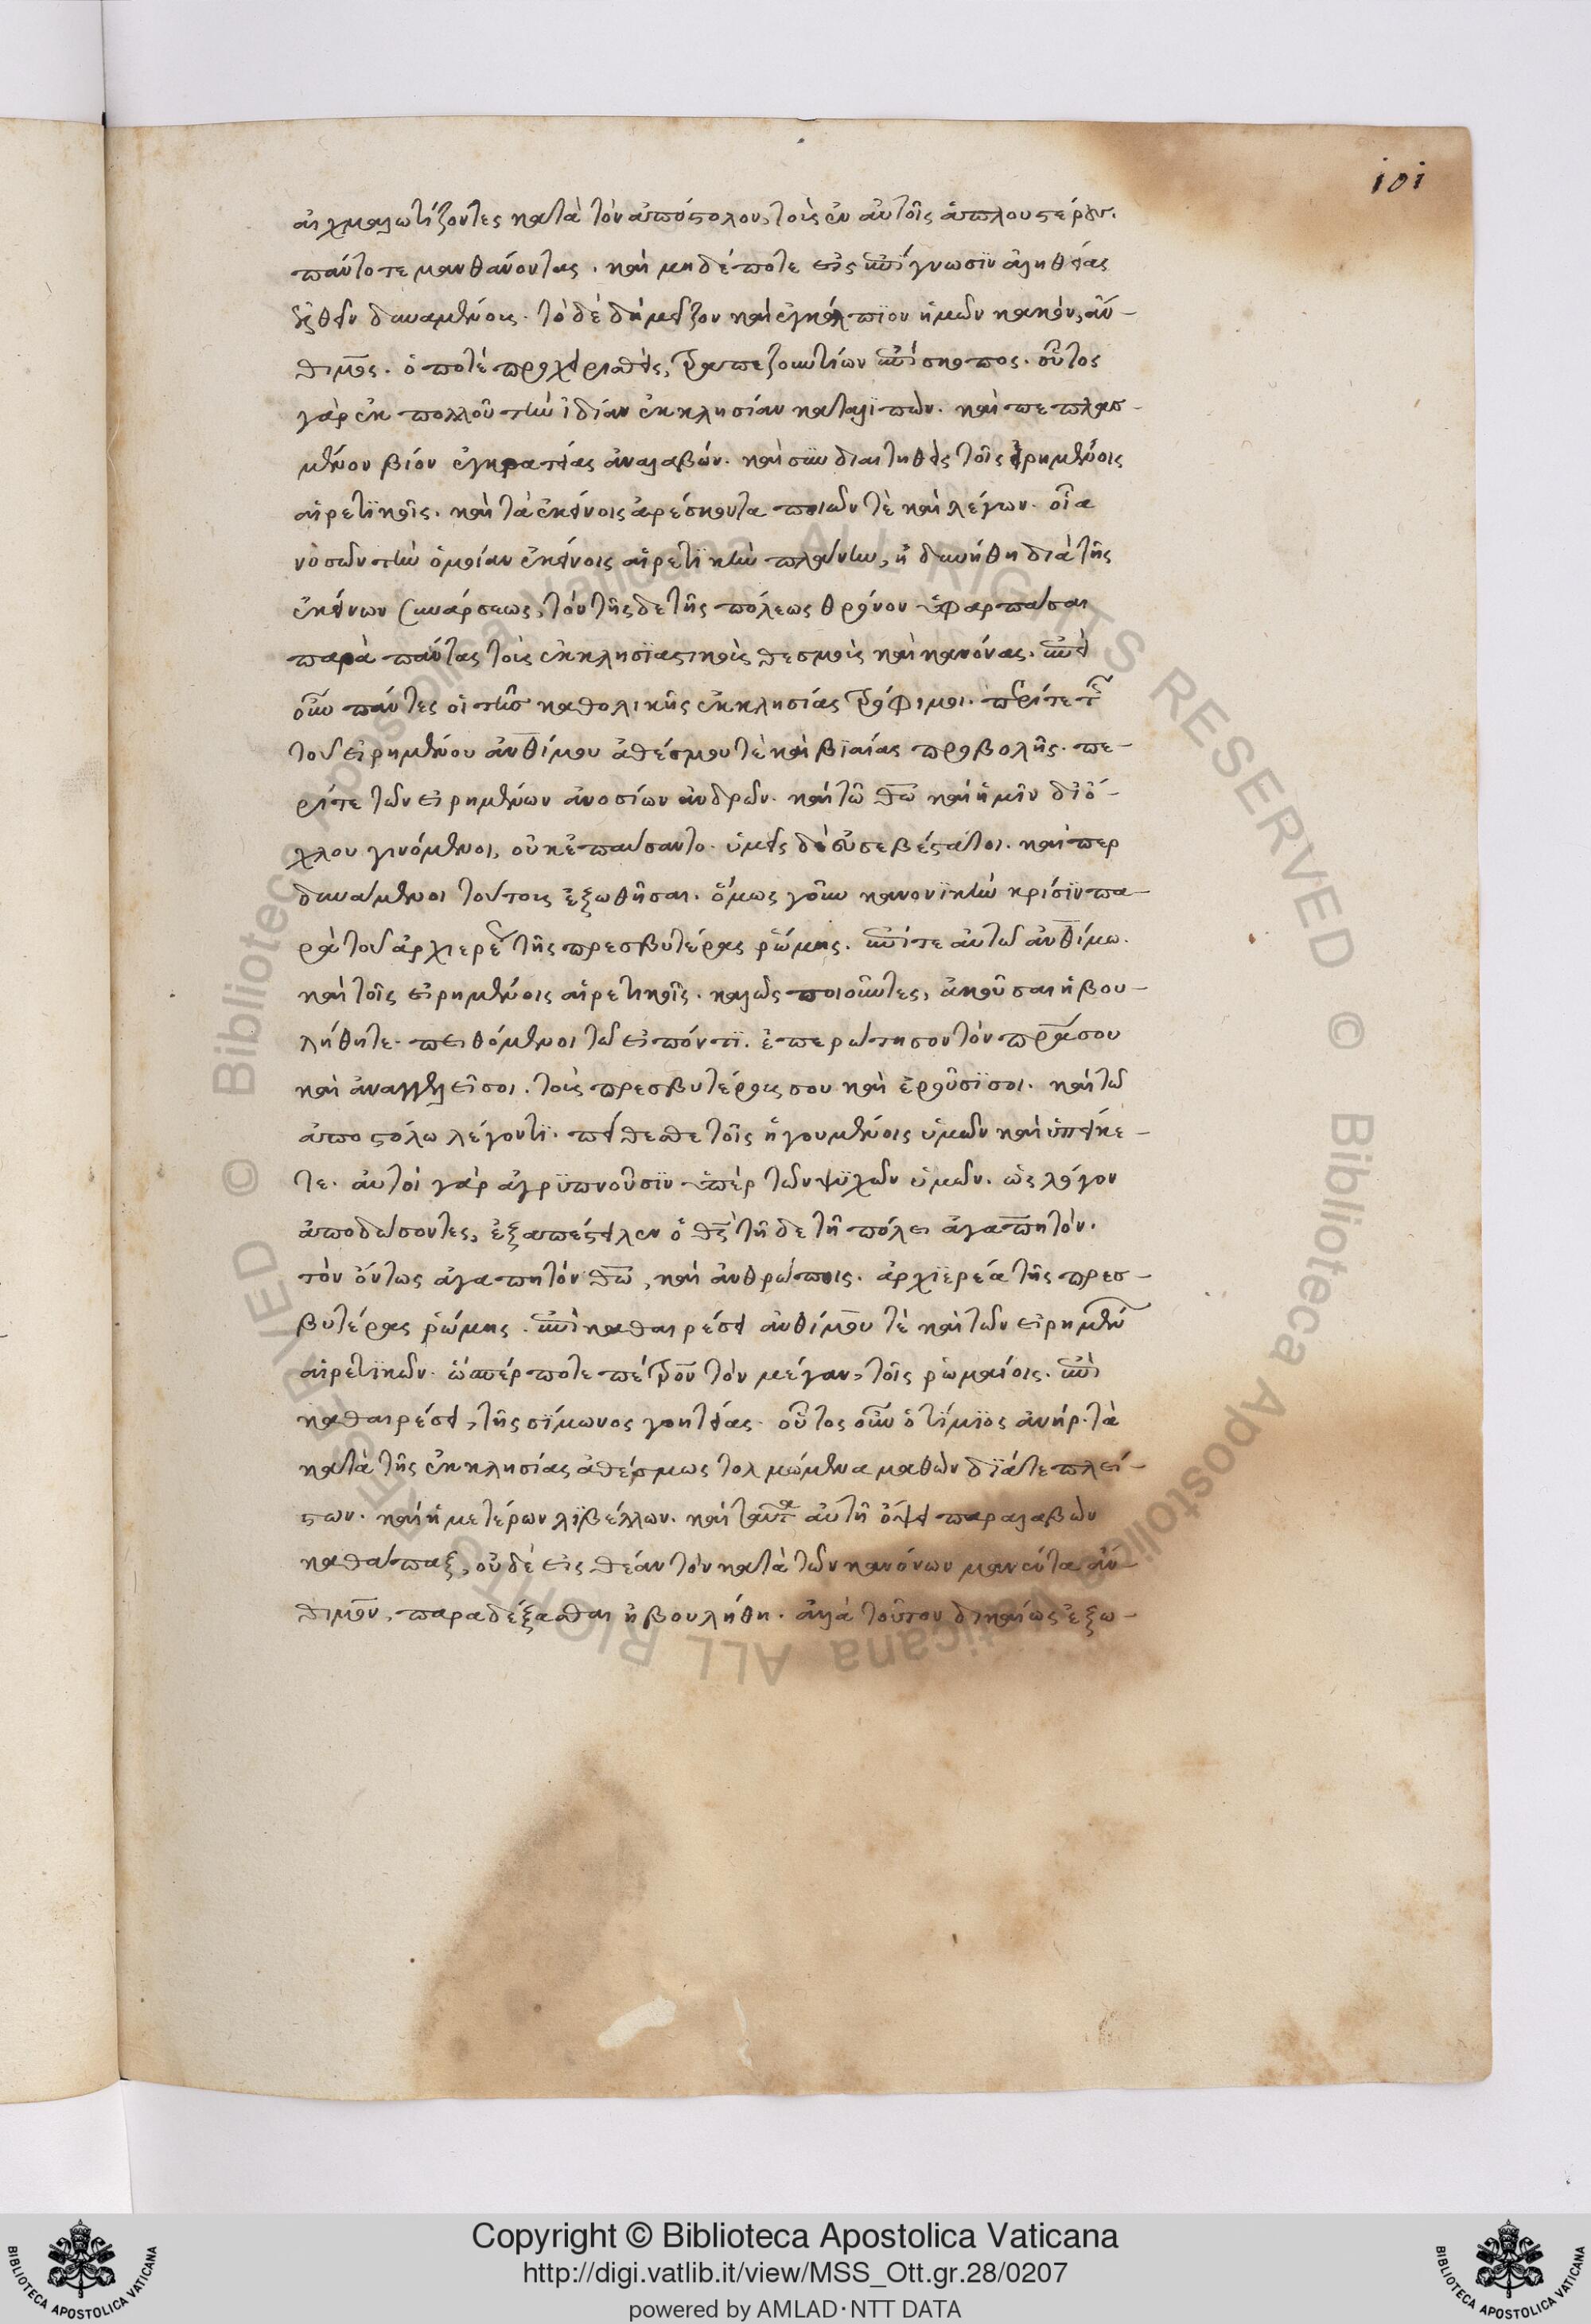 101
αἰχμαλωτίζοντες κατὰ τὸν ἀπόστολον, τοὺς ἐν αὐτοῖς ἁπλουστέρους.
πάντοτε μανθάνοντας. καὶ μηδέποτε εἰς ἐπίγνωσϊν ἀληθείας
ἐλθεῖν δυναμένους. τὸ δὲ δὴ μεῖζον καὶ ἐγκόλπϊον ἡμῶν κακὸν, ἄν-
θιμος. ὁ ποτὲ προχειρισθεὶς, τραπεζουντίων ἐπίσκοπος. οὗτος
γὰρ ἐκ πολλοῦ τὴν ἰδίαν ἐκκλησίαν καταλϊπὼν. καὶ πεπλασ-
μένον βίον ἐγκρατείας ἀναλαβών. καὶ συν διαιτηθεὶς τοῖς εἰρημένοις
αἱρετϊκοῖς. καὶ τὰ ἐκείνοις ἀρέσκοντα ποιῶν τὲ καὶ λέγων. οἷα
νοσῶν τὴν ὁμοίαν ἐκείνοις αἱρετϊκὴν πλάνην, ἠδυνήθη διὰ τῆς
ἐκείνων συνάρσεως, τὸν τῆς δε τῆς πόλεως θρόνον ὑφαρπάσαι
παρὰ πάντας τοὺς ἐκκλησϊαστικοὺς θεσμοὺς καὶ κανόνας. ἐπεὶ
οὖν πάντες οἱ τῆς καθολικῆς ἐκκλησίας τρόφιμοι. περίτε τῆς
τοῦ εἰρημένου ἀνθίμου ἀθέσμου τὲ καὶ βϊαίας προβολῆς. πε-
ρίτε τῶν εἰρημένων ἀνοσίων ἀνδρῶν. καὶ τῶ θῶ καὶ ἡμῖν δι ὄ-
χλου γινόμενοι, οὐκ ἐπαύσαντο. ὑμεῖς δὲ εὐσεβέστατοι. καίπερ
δυνάμενοι τούτους ἐξωθῆσαι. ὅμως γοῦν κανονϊκὴν κρίσϊν πα-
ρὰ τοῦ ἀρχιερέως τῆς πρεσβυτέρας ῥώμης. ἐπίτε αὐτῶ ἀνθίμω.
καὶ τοῖς εἰρημένοις αἱρετικοῖς. καλῶς ποιοῦντες, ἀκοῦσαι ἠβου-
λήθητε. πειθόμενοι τῶ εἰπόντϊ. ἐπερώτησον τὸν πρα σου
καὶ ἀναγγελεῖ σοι. τοὺς πρεσβυτέρους σου καὶ ἐροῦσϊ σοι. καὶ τῶ
ἀποστόλω λέγοντϊ. πείθεσθε τοῖς ἡγουμένοις ὑμῶν καὶ ὑπείκε-
τε. αὐτοὶ γὰρ ἀγρϋπνοῦσϊν ὑπὲρ τῶν ψϋχῶν ὑμῶν. ὡς λόγον
ἀποδώσοντες, ἐξαπέστειλεν ὁ θς τῆ δε τῆ πόλει ἀγαπητὸν.
τὸν ὄντως ἀγαπητὸν θῶ, καὶ ἀνθρώποις. ἀρχϊερέα τῆς πρεσ-
βυτέρας ῥώμης. ἐπὶ καθαιρέσει ἀνθίμου τὲ καὶ τῶν εἰρημένων
αἱρετϊκῶν. ὥσπέρ ποτε πέτρον τὸν μέγαν, τοῖς ῥωμαίοις. ἐπὶ
καθαιρέσει, τῆς σίμωνος γοητείας. οὗτος οὖν ὁ τϊμϊος ἀνήρ. τὰ
κατὰ τῆς ἐκκλησίας ἀθέσμως τολμώμενα μαθὼν δϊάτε πλεί-
στων. καὶ ἡμετέρων λϊβέλλων. καὶ ταῦτα αὐτῆ ὄψει παραλαβὼν
καθάπαξ, οὐδὲ εἰς θέαν τὸν κατὰ τῶν κανόνων μανέντα ἄν-
θιμον, παραδέξασθαι ἠβουλήθη. ἀλλὰ τοῦτον δικαίως ἐξω-
Copyright © Biblioteca Apostolica Vaticana
http://digi.vatlib.it/view/MSS_Ott.gr.28/0207
powered by AMLAD·NTT DATA